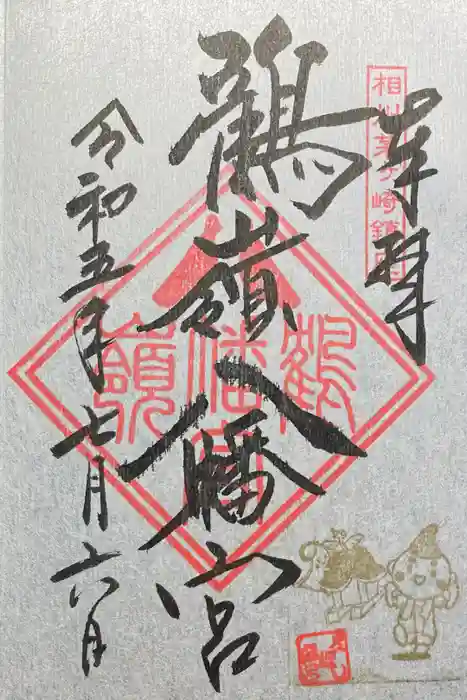 相州茅ヶ崎鎮守
奉拝
鶴嶺八幡宮
令和五年七月六日
鶴
八幡宮
嶺